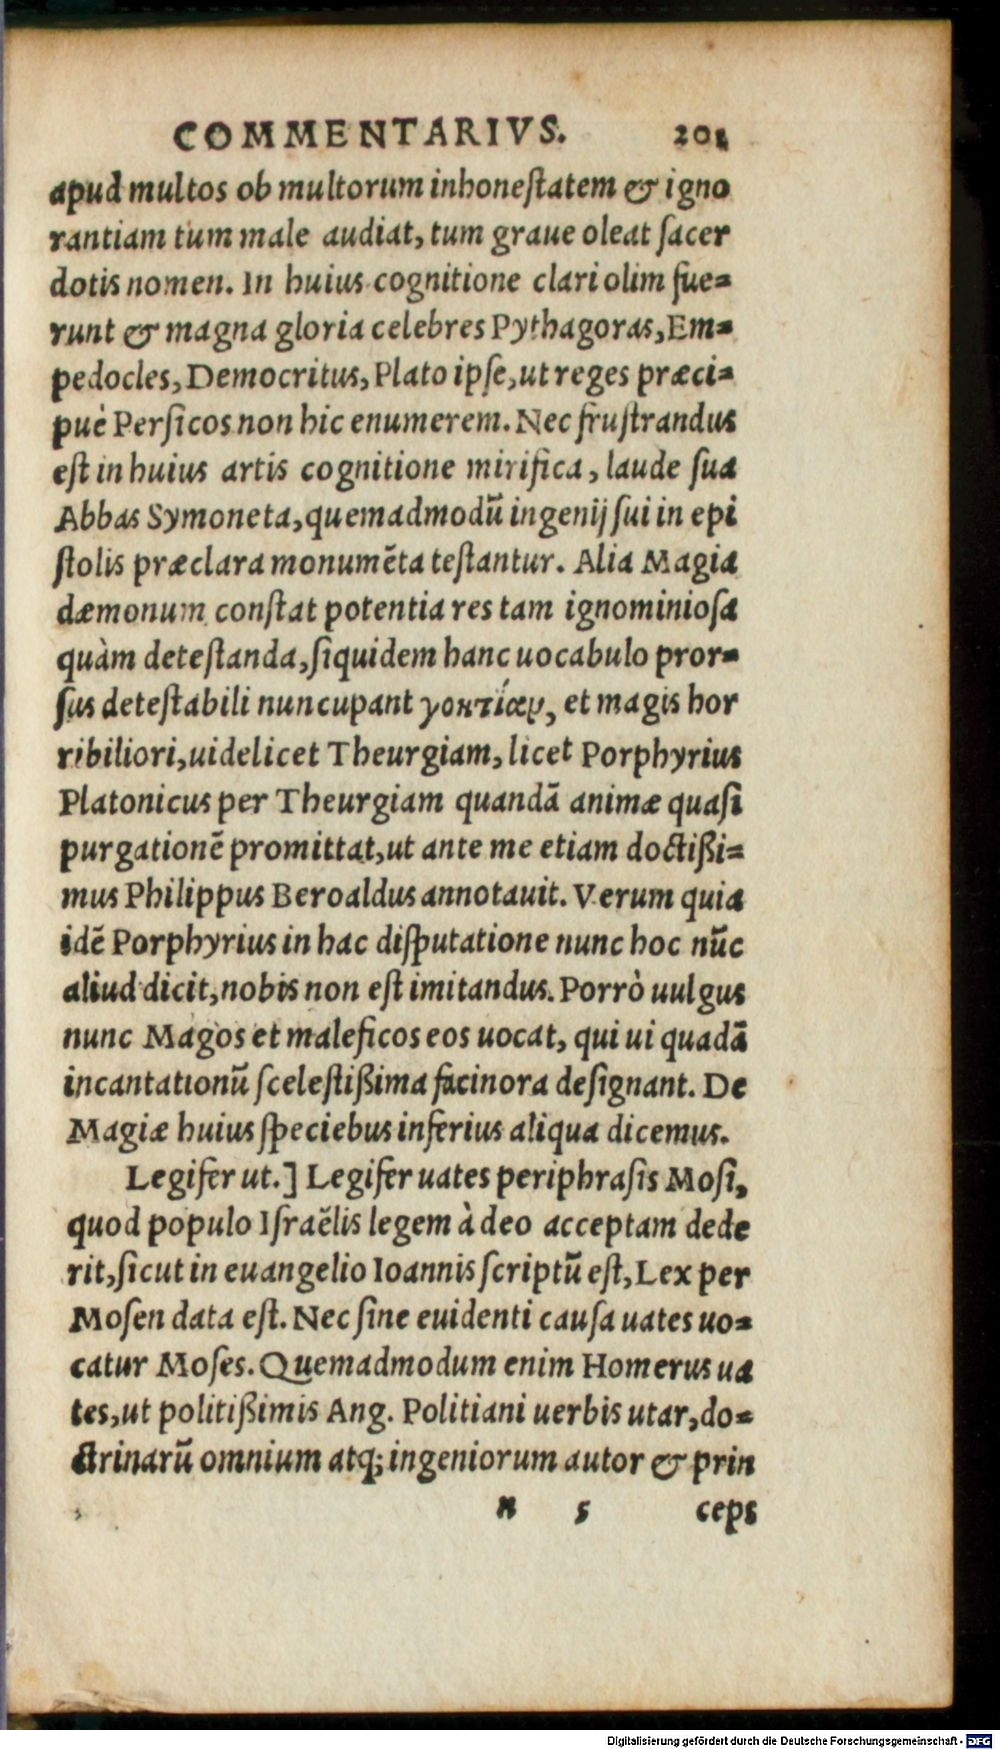 COMMENTARIVS. 201
apud multos ob multorum inhoneſtatem & igno
rantiam tum male audiat, tum graue oleat ſacer
dotis nomen. In huius cognitione clari olim fue=
runt & magna gloria celebres Pythagoras, Em=
pedocles, Democritus, Plato ipſe, ut reges præci=
puè Perſicos non hic enumerem. Nec fruſtrandus
eſt in huius artis cognitione mirifica, laude ſua
Abbas Symoneta, quemadmodũ ingenij ſui in epi
ſtolis præclara monumẽta teſtantur. Alia Magia
dæmonum conſtat potentia res tam ignominioſa
quàm deteſtanda, ſiquidem hanc uocabulo pror=
ſus deteſtabili nuncupant γοητίαν, et magis hor
ribiliori, uidelicet Theurgiam, licet Porphyrius
Platonicus per Theurgiam quandã animæ quaſi
purgationẽ promittat, ut ante me etiam doctißi=
mus Philippus Beroaldus annotauit. Verum quia
idẽ Porphyrius in hac diſputatione nunc hoc nũc
aliud dicit, nobis non eſt imitandus. Porrò uulgus
nunc Magos et maleficos eos uocat, qui ui quadã
incantationũ ſceleſtißima facinora deſignant. De
Magiæ huius ſpeciebus inferius aliqua dicemus.
Legifer ut.] Legifer uates periphraſis Moſi,
quod populo Iſraẽlis legem à deo acceptam dede
rit, ſicut in euangelio Ioannis ſcriptũ eſt, Lex per
Moſen data eſt. Nec ſine euidenti cauſa uates uo=
catur Moſes. Quemadmodum enim Homerus ua
tes, ut politißimis Ang. Politiani uerbis utar, do=
ctrinarũ omnium atq; ingeniorum autor & prin
n 5 ceps
Digitalisierung gefördert durch die Deutsche Forschungsgemeinschaft - DFG